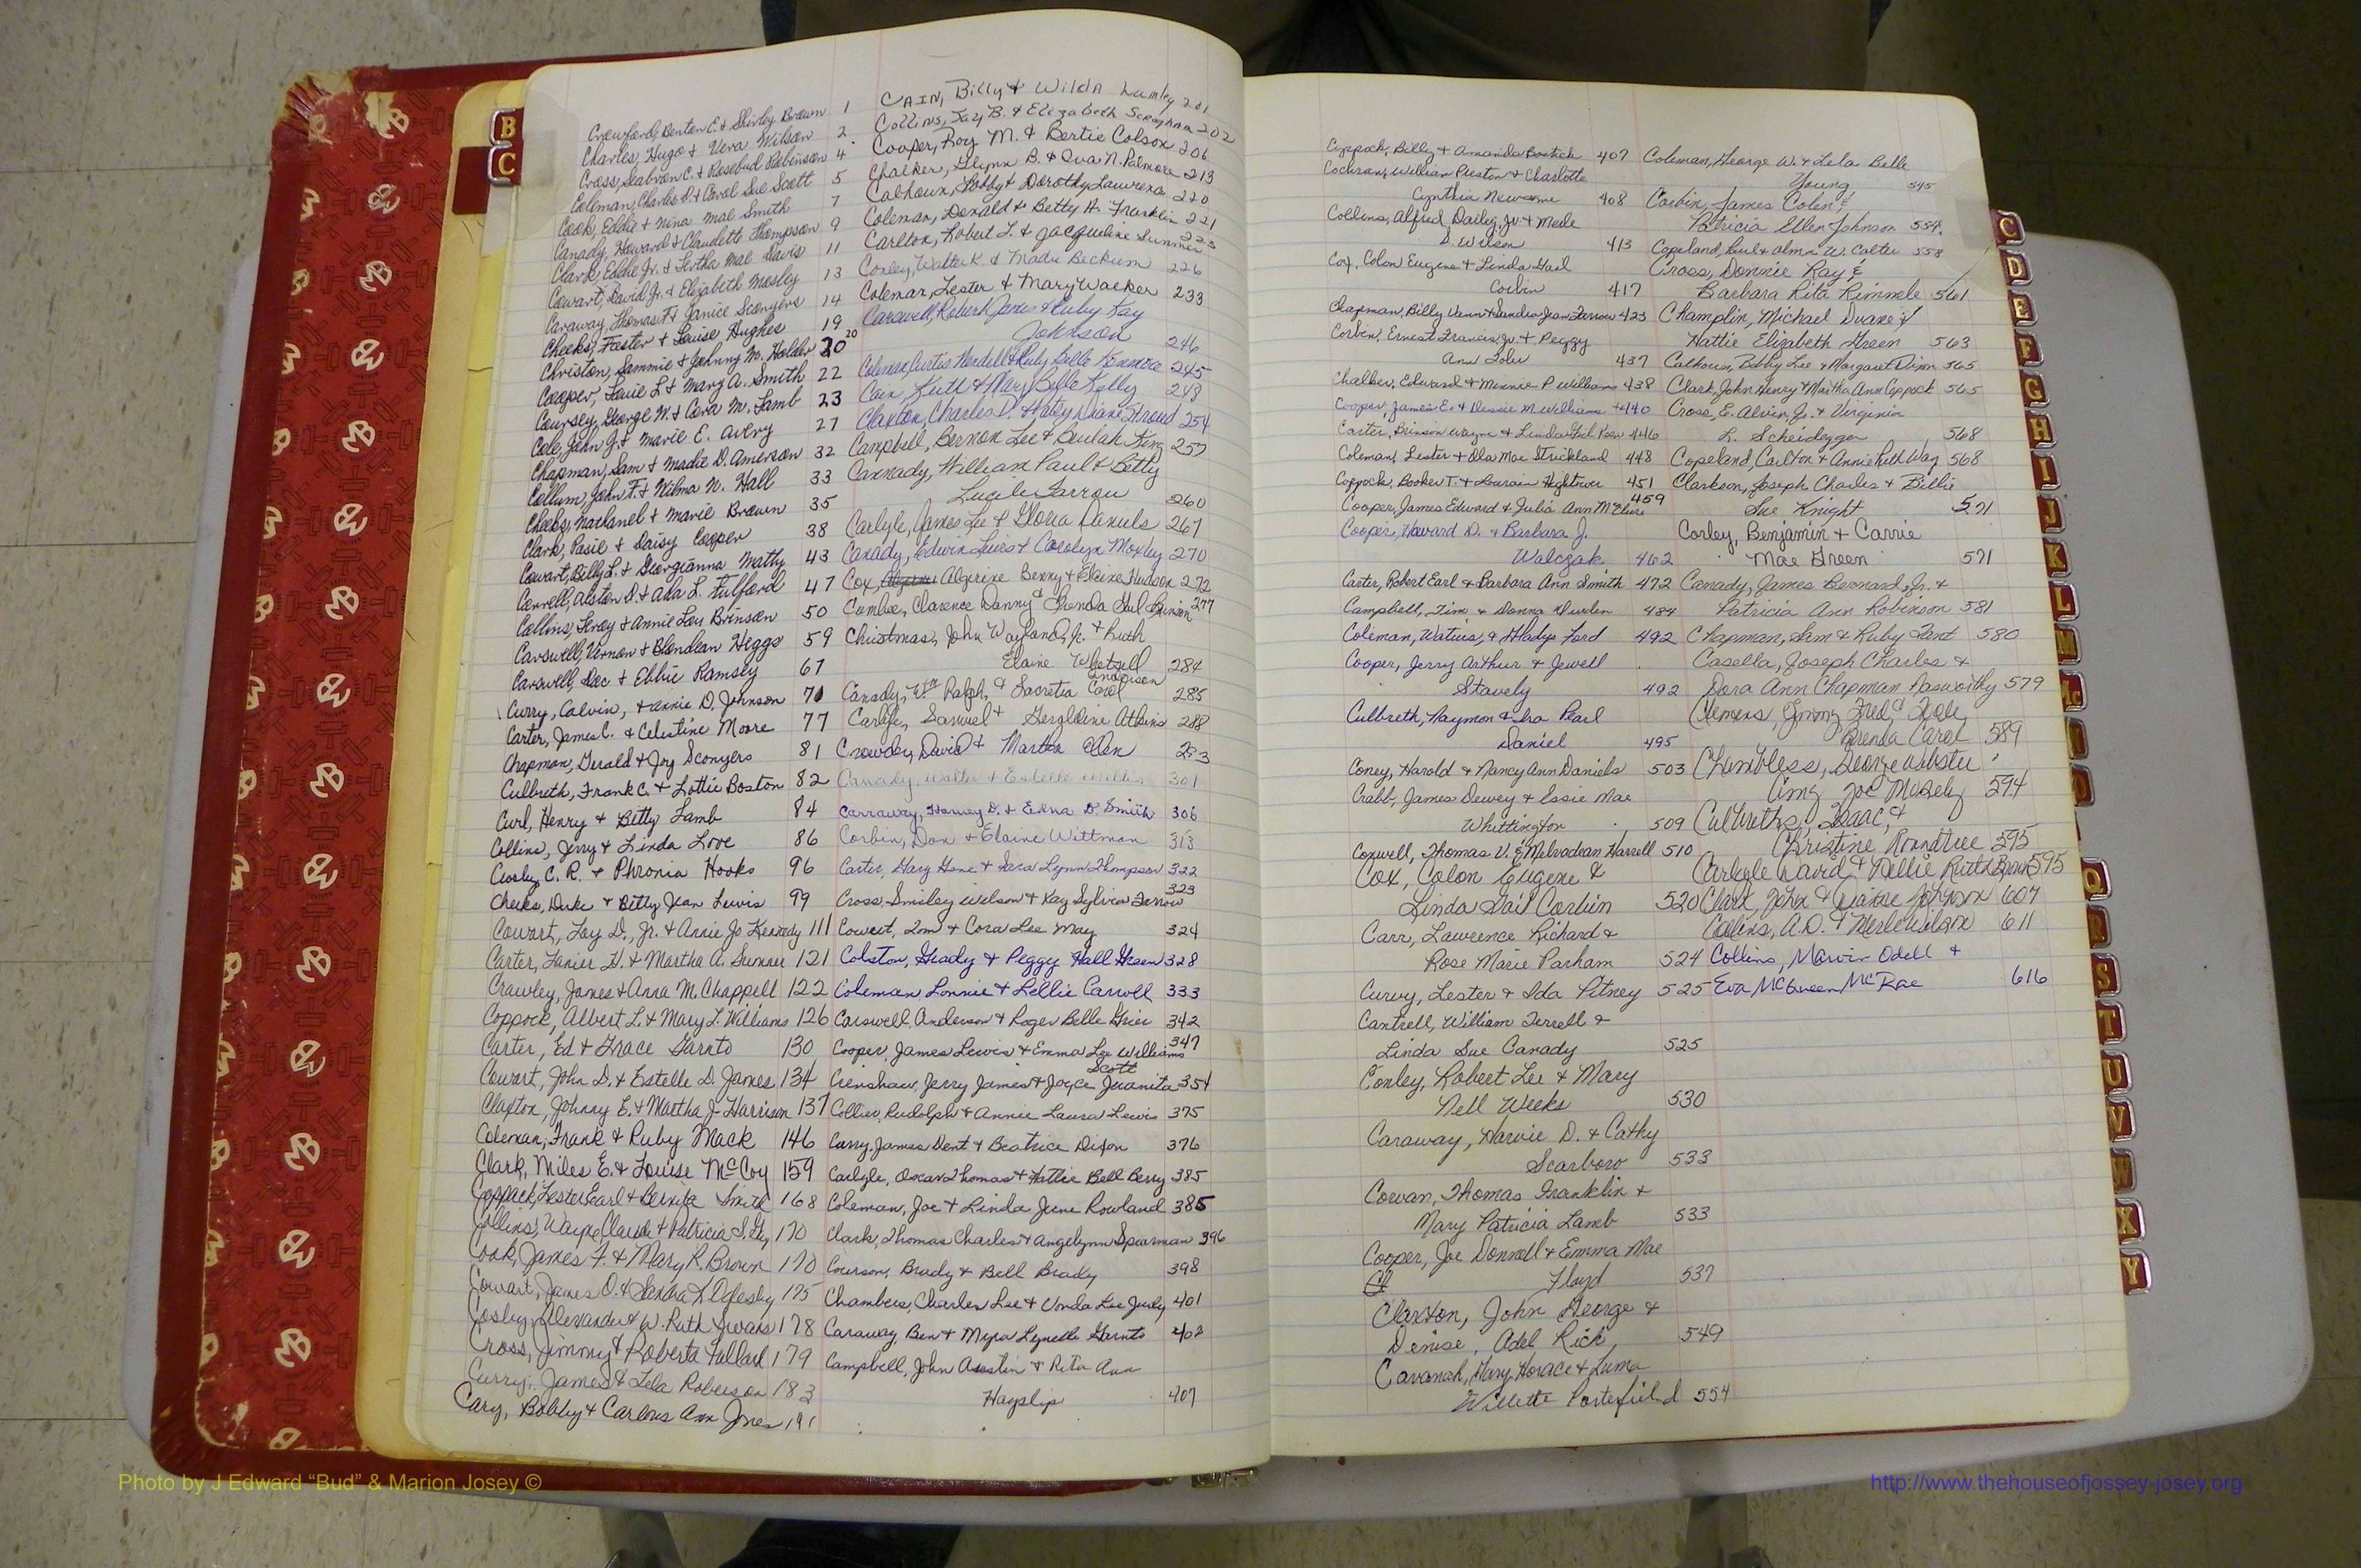 B
C
Crawford, Benton E. & Shirley Brown 1
Charles, Hugo & Vera Wilson 2
Cross, Seabron C. & Rosebud Robinson 4
Coleman, Charles D. & Carol Sue Scott 5
Cook, Eddie & Nina Mae Smith 7
Canady, Howard & Claudette Thompson 9
Clark, Eddie Jr. & Mae Davis 11
Cowart, David Jr. & Elizabeth Mosley 13
Caraway, Thomas F. & Janice Sconyers 14
Cheeks, Foster & Louise Hughes 19
Christon, Sammie & Johnny M. Holder 20 20
Cooper, Louie L. & Mary A. Smith 22
Coursey, George W. & Cora M. Lamb 23
Cole, John J. & Marie E. Avery 27
Chapman, Sam & Madie D. Amerson 32
Collum, John F. & Wilma N. Hall 33
Cheeks, Nathaniel & Marie Brown 35
Clark, Pasie & Daisy Cooper 38
Cowart, Billy L. & Georgianna Mathy 43
Correll, Alston D. & Ada L. Fulford 47
Collins, Leroy & Annie Lou Brinson 50
Carswell, Vernon & Blondean Heggs 59
Carswell, Doc & Ebbie Ramsey 67
Curry, Calvin, & Annie D. Johnson 70
Carter, James C. & Celestine Moore 77
Chapman, Gerald & Joy Sconyers 81
Culbreth, Frank C. & Lottie Boston 82
Curl, Henry & Betty Lamb 84
Collins, Jerry & Linda Love 86
Cosby, C. R. & Phronia Hooks 96
Cheeks, Duke & Betty Jean Lewis 99
Cowart, Loy D., Jr. & Annie Jo Kennedy 111
Carter, Lanier H. & Martha A. Sumner 121
Crawley, James & Anna M. Chappell 122
Coppock, Albert L. & Mary L. Williams 126
Carter, Ed & Grace Garnto 130
Cowart, John D. & Estelle D. James 134
Claxton, Johnny E. & Martha J. Harrison 137
Coleman, Frank & Ruby Mack 146
Clark, Miles E. & Louise McCoy 159
Coppock, Lester Earl & Bernita Smith 168
Collins, Wayne Claude & Patricia S. 170
Cook, James F. & Mary R. Brown 170
Cowart, James O. & Sandra L. Oglesby 175
Cosby, Alexander & W. Ruth 178
Cross, Jimmy & Roberta 179
Curry, James & Lela Roberson 183
Cary, Bobby & Carlous Ann Jones 191
CAIN, Billy & Wilda Lumley 201
Collins, Jay B. & Elizabeth 202
Cooper, Roy M. & Bertie Colson 206
Chalker, Glynn B. & Iva N. Palmore 213
Calhoun, Bobby & Dorothy Lawrence 220
Coleman, Donald & Betty A. Franklin 221
Carlton, Robert L. & Jacqueline Sumner 223
Conley, Walter K. & Madie Beckum 226
Coleman, Lester & Mary Walker 233
Carswell, Robert James & Ruby Kay
Johnson 246
Coleman, Curtis Wendell & Ruby Belle 245
Cain, Keith & Mary Belle Kelly 248
Claxton, Charles D. & Patsy Diane Stroud 254
Campbell, Bernon Lee & Beulah King 257
Cannady, William Paul & Betty
Lucile Farrow 260
Carlyle, James Lee & Gloria Daniels 267
Canady, Edwin Lewis & Carolyn Moxley 270
Cox, Algerine Benny & Elaine Hudson 272
Combee, Clarence Danny & Glenda Gail Brinson 277
Christmas, John Wayland, Jr. & Ruth
Elaine Whetsell 284
Canady, Wm Ralph, & Lacretia Carol Anderson 285
Carlyle, Samuel & Geraldine Atkins 288
Crowder, David & Martha Ellen 293
Canady, Walter & Estelle Willis 301
Carraway, Harvey D. & Edna D. Smith 306
Corbin, Don & Elaine Wittman 313
Carter, Gary Gene & Sara Lynn Thompson 322
Cross, Smisley Wilson & Kay Sylvia Farrow 323
Cowart, Tom & Cora Lee May 324
Colston, Grady & Peggy Hall Green 328
Coleman, Lonnie & Lellie Carroll 333
Carswell, Anderson & Roger Belle Grier 342
Cooper, James Lewis & Emma Lee Williams 347
Crenshaw, Jerry James & Joyce Juanita Scott 354
Collier, Rudolph & Annie Laura Lewis 375
Curry, James Dent & Beatrice Dixon 376
Carlyle, Oscar Thomas & Hattie Bell Berry 385
Coleman, Joe & Linda June Rowland 385
Clark, Thomas Charles & Angelynn Spearman 396
Courson, Brady & Bell Brady 398
Chambers, Charles Lee & Vonda Lee Judy 401
Caraway, Ben & Myra Lynelle Garnto 402
Campbell, John Austin & Rita Ann
Hayslip 407
Coppock, Billy & Amanda Bostick 407
Cochran, William Preston & Charlotte
Cynthia Newsome 408
Collins, Alfred Dailey, Jr. & Merle
D. Wilson 413
Cox, Colon Eugene & Linda Gail
Corbin 417
Chapman, Billy Venn & Sandra Jean Farrow 423
Corbin, Ernest Francis, Jr. & Peggy
Ann Toler 437
Chalker, Edward & Minnie P. Williams 438
Cooper, James E. & Dessie M. Williams 440
Carter, Brinson Wayne & Linda Gail Keen 446
Coleman, Lester & Ola Mae Strickland 448
Coppock, Booker T. & Lourain Hightower 451
Cooper, James Edward & Julia Ann McElure 459
Cooper, Howard D. & Barbara J.
Walczak 462
Carter, Robert Earl & Barbara Ann Smith 472
Campbell, Tim & Donna Durden 484
Coleman, Watius, & Gladys Ford 492
Cooper, Jerry Arthur & Jewell
Stavely 492
Culbreth, Raymon & Ira Pearl
Daniel 495
Coney, Harold & Nancy Ann Daniels 503
Crabb, James Dewey & Essie Mae
Whittington 509
Coxwell, Thomas V. & Melvadean Harrell 510
Cox, Colon Eugene &
Linda Gail Corbin 520
Carr, Lawrence Richard &
Rose Marie Parham 524
Curvy, Lester & Ida Pitney 525
Cantrell, William Terrell &
Linda Sue Canady 525
Conley, Robert Lee & Mary
Nell Weeks 530
Caraway, Harvie D. & Cathy
Scarboro 533
Cowan, Thomas Franklin &
Mary Patricia Lamb 533
Cooper, Joe Donnell & Emma Mae
Floyd 537
Claxton, John George &
Denise, Adel Rick, 549
Cavanah, Mary Horace & Luma
Willette Porterfield 554
Coleman, George W. & Lela Belle
Young 545
Corbin, James Colen &
Patricia Ellen Johnson 554
Copeland, Paul & Alma W. Colter 558
Cross, Donnie Ray &
Barbara Rita Rimmele 561
Champlin, Michael Duane &
Hattie Elizabeth Green 563
Calhoun, Bobby Lee & Margaret Dixon 565
Clark, John Henry & Martha Ann Coppock 565
Cross, E. Alvin, Jr. & Virginia
L. Scheidegger 568
Copeland, Carlton & Annie Ruth Way 568
Clarkson, Joseph Charles & Billie
Sue Knight 571
Corley, Benjamin & Carrie
Mae Green 571
Canady, James Bernard, Jr. &
Patricia Ann Robinson 581
Chapman, Sam & Ruby Fant 580
Casella, Joseph Charles &
Dora Ann Chapman Nasworthy 579
Clemens, Jimmy Fred, &
Brenda Carol 589
Chambless, George Webster
594
Culbreth, Isaac, &
Christine Roundtree 595
Carlyle David & Nellie Ruth Brown 595
Clark, John & Johnson 607
Collins, A.D. & Merle Wilson 611
Collins, Marvin Odell &
Eva McQueen McRae 616
C
D
E
F
G
H
I
J
K
L
M
Q
R
S
T
U
V
W
X
Y
Photo by J Edward “Bud” & Marion Josey ©
http://www.thehouseofjossey-josey.org